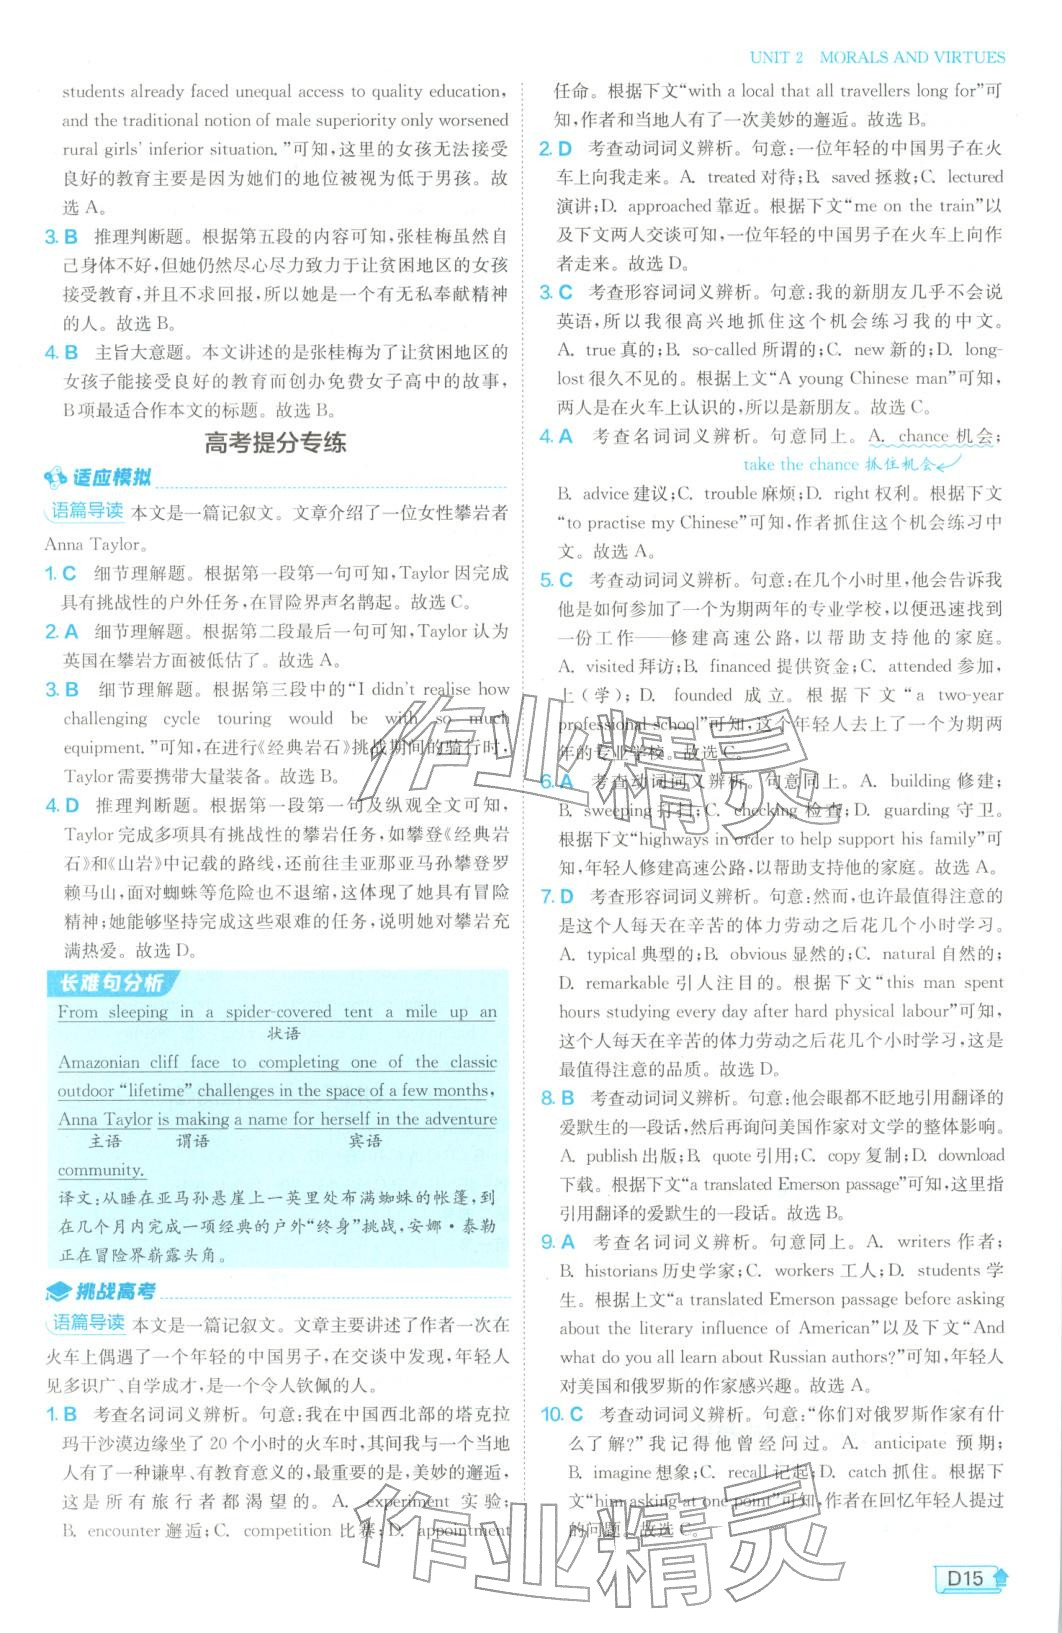 UNIT 2 MORALS AND VIRTUES
students already faced unequal access to quality education,
and the traditional notion of male superiority only worsened
rural girls' inferior situation. ”可知，这里的女孩无法接受
良好的教育主要是因为她们的地位被视为低于男孩。故
选 A。
3. B 推理判断题。根据第五段的内容可知，张桂梅虽然自
己身体不好，但她仍然尽心尽力致力于让贫困地区的女孩
接受教育，并且不求回报，所以她是一个有无私奉献精神
的人。故选 B。
4. B 主旨大意题。本文讲述的是张桂梅为了让贫困地区的
女孩子能接受良好的教育而创办免费女子高中的故事，
B项最适合作本文的标题。故选 B。
高考提分专练
适应模拟
语篇导读 本文是一篇记叙文。文章介绍了一位女性攀岩者
Anna Taylor。
1. C 细节理解题。根据第一段第一句可知，Taylor 因完成
具有挑战性的户外任务，在冒险界声名鹊起。故选 C。
2. A 细节理解题。根据第二段最后一句可知，Taylor 认为
英国在攀岩方面被低估了。故选 A。
3. B 细节理解题。根据第三段中的“I didn't realise how
challenging cycle touring would be with so much
equipment. ”可知，在进行《经典岩石》挑战期间的骑行时，
Taylor 需要携带大量装备。故选 B。
4. D 推理判断题。根据第一段第一句及纵观全文可知，
Taylor 完成多项具有挑战性的攀岩任务，如攀登《经典岩
石》和《山岩》中记载的路线，还前往圭亚那亚马孙攀登罗
赖马山，面对蜘蛛等危险也不退缩，这体现了她具有冒险
精神；她能够坚持完成这些艰难的任务，说明她对攀岩充
满热爱。故选 D。
长难句分析
From sleeping in a spider-covered tent a mile up an
状语
Amazonian cliff face to completing one of the classic
outdoor “lifetime” challenges in the space of a few months,
Anna Taylor is making a name for herself in the adventure
主语 谓语 宾语
community.
译文：从睡在亚马孙悬崖上一英里处布满蜘蛛的帐篷，到
在几个月内完成一项经典的户外“终身”挑战，安娜·泰勒
正在冒险界崭露头角。
挑战高考
语篇导读 本文是一篇记叙文。文章主要讲述了作者一次在
火车上偶遇了一个年轻的中国男子，在交谈中发现，年轻人
见多识广、自学成才，是一个令人钦佩的人。
1. B 考查名词词义辨析。句意：我在中国西北部的塔克拉
玛干沙漠边缘坐了 20 个小时的火车时，其间我与一个当地
人有了一种谦卑、有教育意义的，最重要的是，美妙的邂逅，
这是所有旅行者都渴望的。A. experiment 实验；
B. encounter 邂逅；C. competition 比赛；D. appointment
任命。根据下文“with a local that all travellers long for”可
知，作者和当地人有了一次美妙的邂逅。故选 B。
2. D 考查动词词义辨析。句意：一位年轻的中国男子在火
车上向我走来。A. treated 对待；B. saved 拯救；C. lectured
演讲；D. approached 靠近。根据下文“me on the train”以
及下文两人交谈可知，一位年轻的中国男子在火车上向作
者走来。故选 D。
3. C 考查形容词词义辨析。句意：我的新朋友几乎不会说
英语，所以我很高兴地抓住这个机会练习我的中文。
A. true 真的；B. so-called 所谓的；C. new 新的；D. long-
lost 很久不见的。根据上文“A young Chinese man”可知，
两人是在火车上认识的，所以是新朋友。故选 C。
4. A 考查名词词义辨析。句意同上。A. chance 机会；
take the chance 抓住机会
B. advice 建议；C. trouble 麻烦；D. right 权利。根据下文
“to practise my Chinese”可知，作者抓住这个机会练习中
文。故选 A。
5. C 考查动词词义辨析。句意：在几个小时里，他会告诉我
他是如何参加了一个为期两年的专业学校，以便迅速找到
一份工作——修建高速公路，以帮助支持他的家庭。
A. visited 拜访；B. financed 提供资金；C. attended 参加，
上（学）；D. founded 成立。根据下文“a two-year
professional school”可知，这个年轻人去上了一个为期两
年的专业学校。故选 C。
6. A 考查动词词义辨析。句意同上。A. building 修建；
B. sweeping 打扫；C. checking 检查；D. guarding 守卫。
根据下文“highways in order to help support his family”可
知，年轻人修建高速公路，以帮助支持他的家庭。故选 A。
7. D 考查形容词词义辨析。句意：然而，也许最值得注意的
是，这个人每天在辛苦的体力劳动之后花几个小时学习。
A. typical 典型的；B. obvious 显然的；C. natural 自然的；
D. remarkable 引人注目的。根据下文“this man spent
hours studying every day after hard physical labour”可知，
这个人每天在辛苦的体力劳动之后花几个小时学习，这是
最值得注意的品质。故选 D。
8. B 考查动词词义辨析。句意：他会眼都不眨地引用翻译的
爱默生的一段话，然后再询问美国作家对文学的整体影响。
A. publish 出版；B. quote 引用；C. copy 复制；D. download
下载。根据下文“a translated Emerson passage”可知，这里指
引用翻译的爱默生的一段话。故选 B。
9. A 考查名词词义辨析。句意同上。A. writers 作者；
B. historians 历史学家；C. workers 工人；D. students 学
生。根据上文“a translated Emerson passage before asking
about the literary influence of American”以及下文“And
what do you all learn about Russian authors?”可知，年轻人
对美国和俄罗斯的作家感兴趣。故选 A。
10. C 考查动词词义辨析。句意：“你们对俄罗斯作家有什
么了解？”我记得他曾经问过。A. anticipate 预期；
B. imagine 想象；C. recall 记起；D. catch 抓住。根据下
文“him asking at one point”可知，作者在回忆年轻人提过
的问题。故选 C。
作业精灵
作业精灵
D15